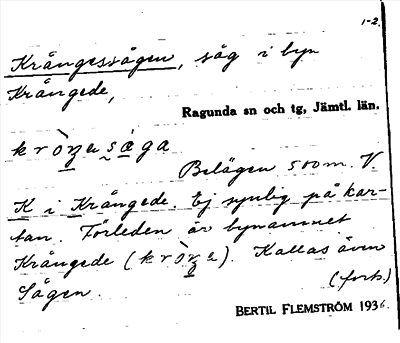 1-2.
Krångessågen, såg i byn
Krångede,
Ragunda sn och tg, Jämtl. län.
Belägen 500 m. V.
K i Krångede. Ej synlig på kar-
tan. Förleden är bynamnet
Krångede ( ). Kallas även
Sågen. (forts.)
BERTIL FLEMSTRÖM 1936.